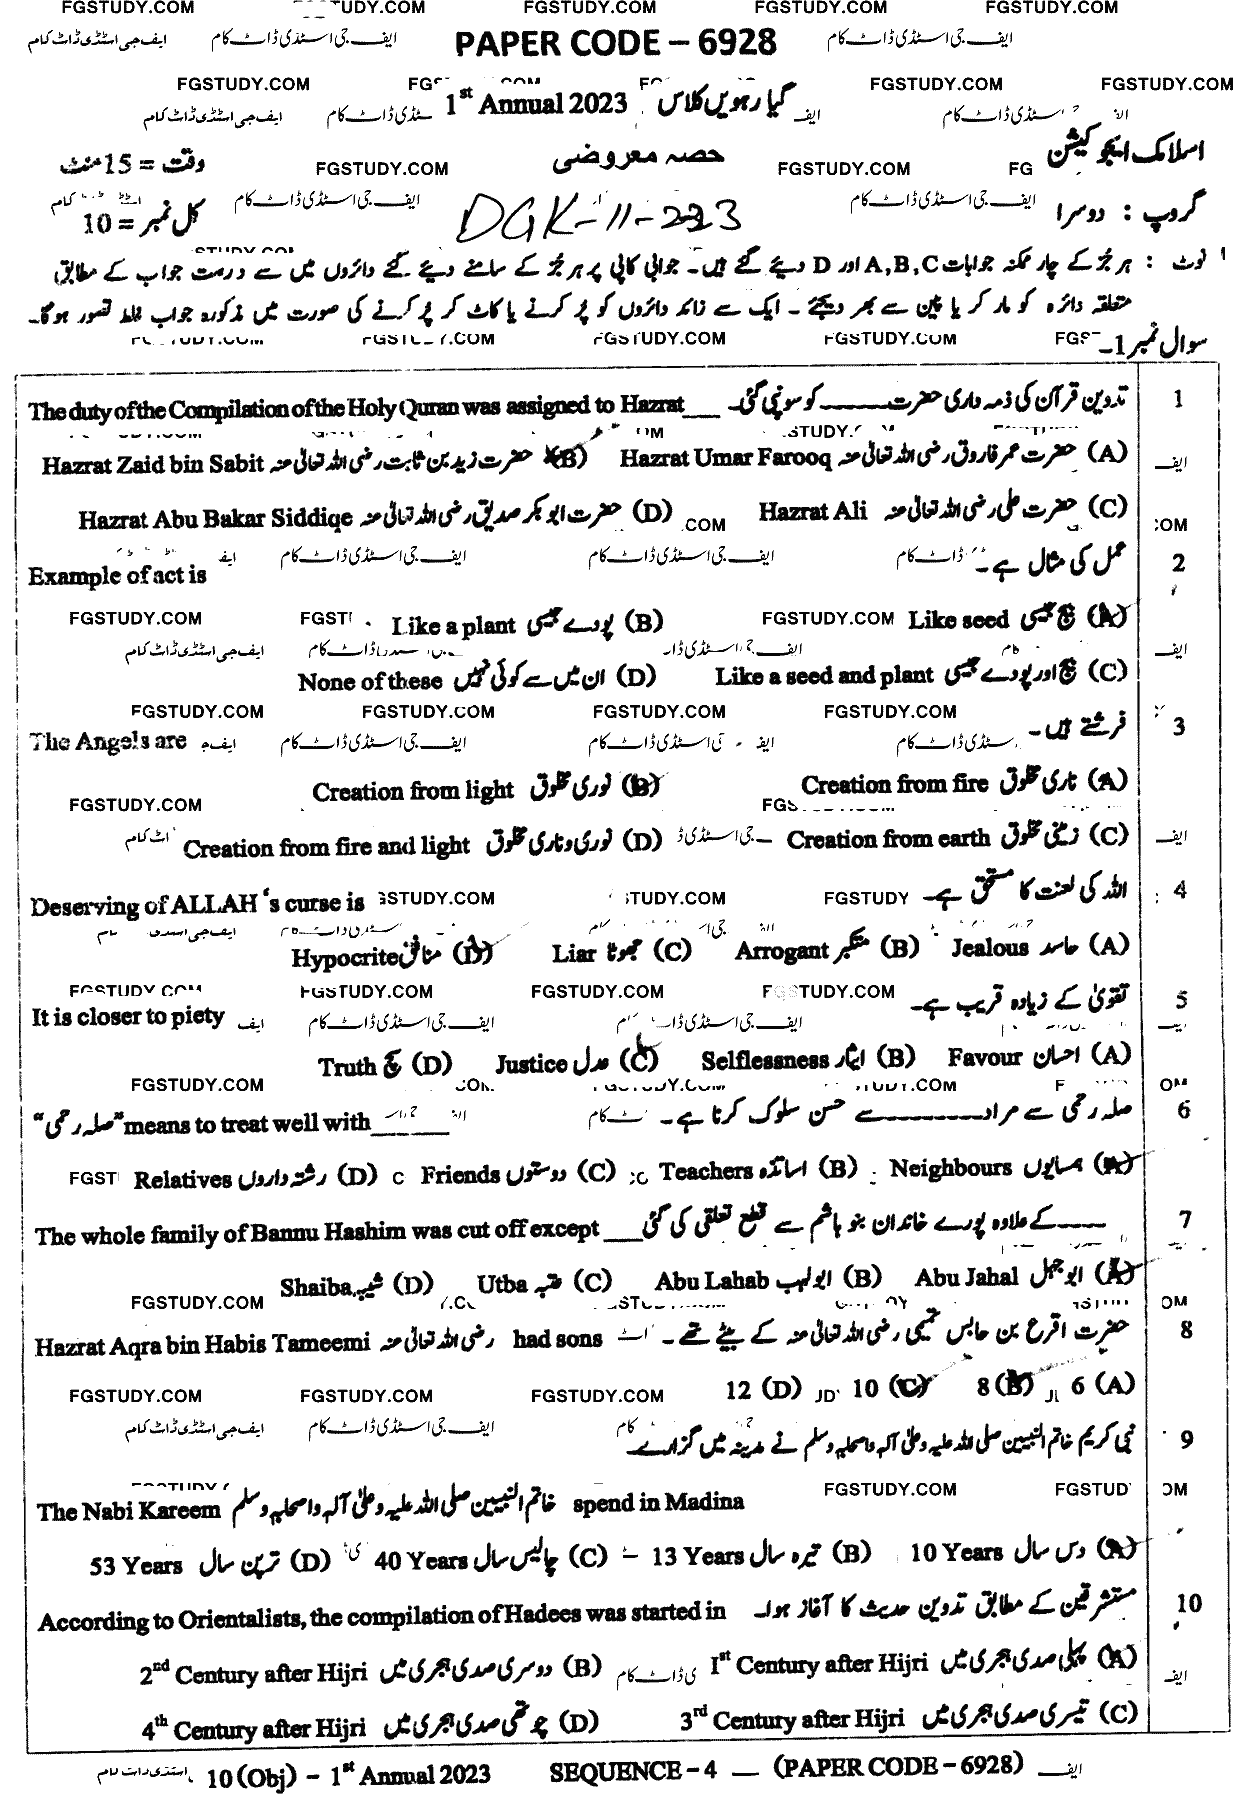 FGSTUDY.COM FGSTUDY.COM FGSTUDY.COM FGSTUDY.COM
ایف جی اسٹڈی ڈاٹ کام ایف جی اسٹڈی ڈاٹ کام PAPER CODE – 6928 ایف جی اسٹڈی ڈاٹ کام
FGSTUDY.COM FGSTUDY.COM FGSTUDY.COM
گیارہویں کلاس 1st Annual 2023
اسلامک ایجوکیشن حصہ معروضی وقت = 15 منٹ
FGSTUDY.COM FGSTUDY.COM
گروپ : دوسرا DGK-11-223 کل نمبر = 10
نوٹ : ہر جز کے چار ممکنہ جوابات A,B,C اور D دیئے گئے ہیں۔ جوابی کاپی پر ہر جز کے سامنے دیئے گئے دائروں میں سے درست جواب کے مطابق
متعلقہ دائرہ کو مارکر یا پین سے بھر دیجئے۔ ایک سے زائد دائروں کو پُر کرنے یا کاٹ کر پُر کرنے کی صورت میں مذکورہ جواب غلط تصور ہوگا۔
سوال نمبر 1۔
1 تدوین قرآن کی ذمہ داری حضرت ______ کو سونپی گئی۔ The duty of the Compilation of the Holy Quran was assigned to Hazrat___
(A) حضرت عمر فاروق رضی اللہ تعالیٰ عنہ Hazrat Umar Farooq (B) حضرت زید بن ثابت رضی اللہ تعالیٰ عنہ Hazrat Zaid bin Sabit
(C) حضرت علی رضی اللہ تعالیٰ عنہ Hazrat Ali (D) حضرت ابوبکر صدیق رضی اللہ تعالیٰ عنہ Hazrat Abu Bakar Siddiqe
2 عمل کی مثال ہے۔ Example of act is
(A) بیج جیسی Like seed (B) پودے جیسی Like a plant
(C) بیج اور پودے جیسی Like a seed and plant (D) ان میں سے کوئی نہیں None of these
FGSTUDY.COM FGSTUDY.COM FGSTUDY.COM FGSTUDY.COM
3 فرشتے ہیں۔ The Angels are
(A) ناری مخلوق Creation from fire (B) نوری مخلوق Creation from light
(C) زمینی مخلوق Creation from earth (D) نوری و ناری مخلوق Creation from fire and light
4 اللہ کی لعنت کا مستحق ہے۔ Deserving of ALLAH 's curse is
(A) حاسد Jealous (B) متکبر Arrogant (C) جھوٹا Liar (D) منافق Hypocrite
5 تقویٰ کے زیادہ قریب ہے۔ It is closer to piety
(A) احسان Favour (B) ایثار Selflessness (C) عدل Justice (D) سچ Truth
6 صلہ رحمی سے مراد ______ سے حسن سلوک کرنا ہے۔ "صلہ رحمی" means to treat well with______
(A) ہمسایوں Neighbours (B) اساتذہ Teachers (C) دوستوں Friends (D) رشتہ داروں Relatives
7 ____ کے علاوہ پورے خاندان بنو ہاشم سے قطع تعلقی کی گئی The whole family of Bannu Hashim was cut off except ___
(A) ابوجہل Abu Jahal (B) ابولہب Abu Lahab (C) عتبہ Utba (D) شیبہ Shaiba
8 حضرت اقرع بن حابس تمیمی رضی اللہ تعالیٰ عنہ کے بیٹے تھے۔ Hazrat Aqra bin Habis Tameemi رضی اللہ تعالیٰ عنہ had sons
(A) 6 (B) 8 (C) 10 (D) 12
FGSTUDY.COM FGSTUDY.COM FGSTUDY.COM
9 نبی کریم خاتم النبیین صلی اللہ علیہ وعلیٰ آلہ واصحابہ وسلم نے مدینہ میں گزارے۔
The Nabi Kareem خاتم النبیین صلی اللہ علیہ وعلیٰ آلہ واصحابہ وسلم spend in Madina
(A) دس سال 10 Years (B) تیرہ سال 13 Years (C) چالیس سال 40 Years (D) ترپن سال 53 Years
10 مستشرقین کے مطابق تدوین حدیث کا آغاز ہوا۔ According to Orientalists, the compilation of Hadees was started in
(A) پہلی صدی ہجری میں 1st Century after Hijri (B) دوسری صدی ہجری میں 2nd Century after Hijri
(C) تیسری صدی ہجری میں 3rd Century after Hijri (D) چوتھی صدی ہجری میں 4th Century after Hijri
10 (Obj) – 1st Annual 2023 SEQUENCE – 4 (PAPER CODE – 6928)